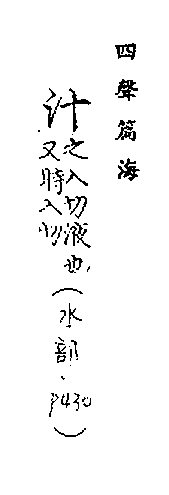 四聲篇海
汁之入切液也
又時入切
(水部．P430)